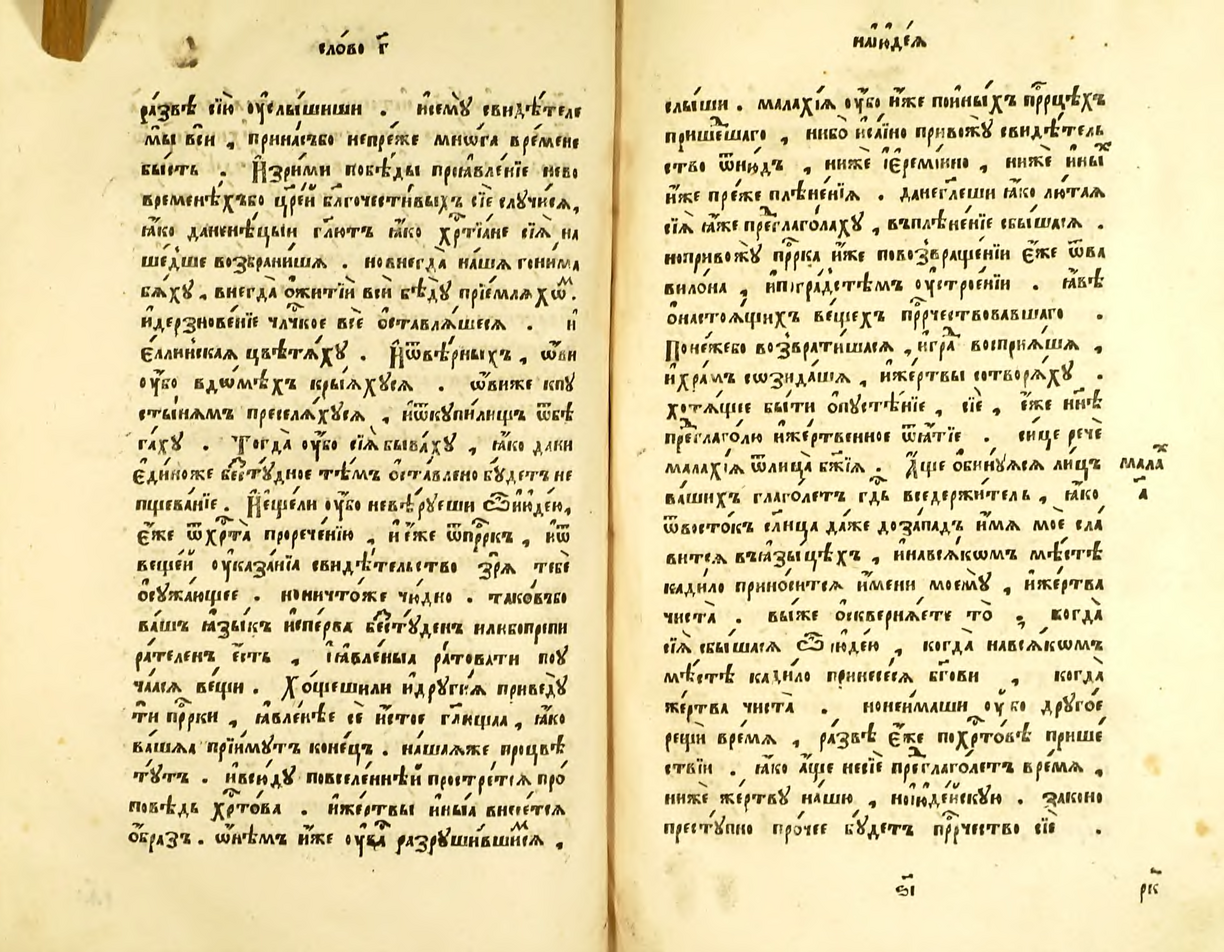 сло́во г҃
ра́звѣ сїю̀ оу҆слы́шиши . и҆сему̀ свидѣ́теле
мы̀ всѝ , прина́събо непре́же мно́га вре́мене
бы́сть . И҆зри́ми побѣ́ды проѧвле́нїе нево
времене́хъбо цр҃е́й бл҃гочести́выхъ сїѐ случи́сѧ,
ꙗ҆́ко дане́нѣцыи гл҃ютъ ꙗ҆́ко хр҃тїа́не сїѧ̀ на
ше́дше возбрани́шѧ . новнегда̀ на́шѧ гони́ма
бѧ́ху , внегда̀ ѻ҆житїѝ всѝ бѣ́ду прїе́млѧхѡм .
и҆дерзнове́нїе чл҃чкое всѐ ѻ҆ставлѧ́шесѧ . и҆
є҆́ллинскаѧ цвѣтѧ́ху . И҆ѿвѣ́рныхъ , ѡ҆́ви
оу҆́бо вдомѣ́хъ крыѧ́хусѧ . ѡ҆́виже кпу
сты́нѧмъ преселѧ́хусѧ , и҆ѿкупи́лищъ ѿбѣ
га́ху . Тогда̀ оу҆́бо сїѧ̀ быва́ху , ꙗ҆́ко да́ни
є҆ди́ноже бесту́дное тѣ́мъ ѻ҆ста́влено бу́детъ не
пщева́нїе . И҆ще́ли оу҆́бо невѣ́руеши ѽ и҆юде́ю,
є҆́же ѿхр҃та̀ прорече́нїю , и҆є҆́же ѿпр҃ркъ , и҆ѿ
веще́й оу҆каза́нїа свидѣ́тельство зрѧ̀ тебѐ
ѻ҆сужа́ющее . ноничто́же чю́дно . тако́въбо
ва́шъ ꙗ҆зы́къ и҆спе́рва бесту́денъ и҆любопрїпи
ра́теленъ є҆́сть , і҆ꙗ҆вле́ныѧ ра́товати поу
ча́лсѧ ве́щи . Хо́щешили и҆други́ѧ приведу̀
ти пр҃рки , ꙗ҆вле́нѣе сѐ и҆́стое гл҃ща́ѧ , ꙗ҆́ко
ва́шѧѧ прїи́мутъ коне́цъ . на́шаѧже процвѣ
ту́тъ . и҆всю́ду повселе́ннѣй простре́тсѧ про́
повѣдь хр҃то́ва . и҆же́ртвы и҆ны́ѧ внесе́тсѧ
ѻ҆́бразъ . ѡ҆не́мъ и҆́же оу҆́бѡ разруши́вшимсѧ ,
наі҆юде́ѧ
слы́ши . мала́хїѧ оу҆́бо и҆́же пои҆ны́хъ пр҃рцѣхъ
прише́дшаго , ни́бо и҆са́їно привожу̀ свидѣ́тель
ство ѿню́дъ , ни́же і҆ереми́ино , ни́же и҆ны́х
и҆́же пре́же плѣне́нїѧ . данегл҃еши ꙗ҆́ко лю́таѧ
сїѧ̀ ꙗ҆́же предглаго́лаху , въплѣне́нїе сбы́шасѧ .
нопривожу̀ пр҃рка и҆́же повозвраще́нїи є҆́же ѿва
вило́на , и҆пигра́дстѣмъ оу҆строе́нїи . ꙗ҆́вѣ
ѻ҆настоѧ́щихъ ве́щехъ пр҃рчествовавшаго .
Поне́жебо возврати́шасѧ , и҆гра́д воспрїѧ́шѧ ,
и҆хра́мъ созида́шѧ , и҆же́ртвы сотворѧ́ху .
хотѧ́щее бы́ти ѻ҆пустѣ́нїе , сїѐ , є҆́же нн҃ѣ
предглаго́лю и҆же́ртвенное ѿѧ́тїе . си́це речѐ
мала́хїѧ ѿлица̀ бж҃їѧ . А҆́ще ѻ҆бину́юсѧ ли́цъ
мала́х
а҃
ва́шихъ глаго́летъ гд҃ь вседержи́тель , ꙗ҆́ко
ѿвосто́къ сл҃нца да́же доза́падъ и҆́мѧ моѐ сла́
витсѧ въꙗ҆зы́цѣхъ , и҆навсѧ́комъ мѣ́стѣ
кади́ло прино́ситсѧ и҆́мени моему̀ , и҆же́ртва
чиста̀ . вы́же ѻ҆сквернѧ́ете то̀ , когда̀
сїѧ̀ сбы́шасѧ ѽ і҆юде́ю , когда̀ навсѧ́комъ
мѣ́стѣ кади́ло принесе́сѧ бг҃ови , когда̀
же́ртва чиста̀ . нонеи́маши оу҆́бо друго́е
рещѝ вре́мѧ , ра́звѣ є҆́же похр҃то́вѣ прише́
ствїи . ꙗ҆́ко а҆́ще несїѐ предглаго́летъ вре́мѧ ,
ни́же же́ртву на́шю , ної҆юде́йскую . законо
престу́пно про́чее бу́детъ пр҃рчество сїѐ .
ѕ҃і
рк҃